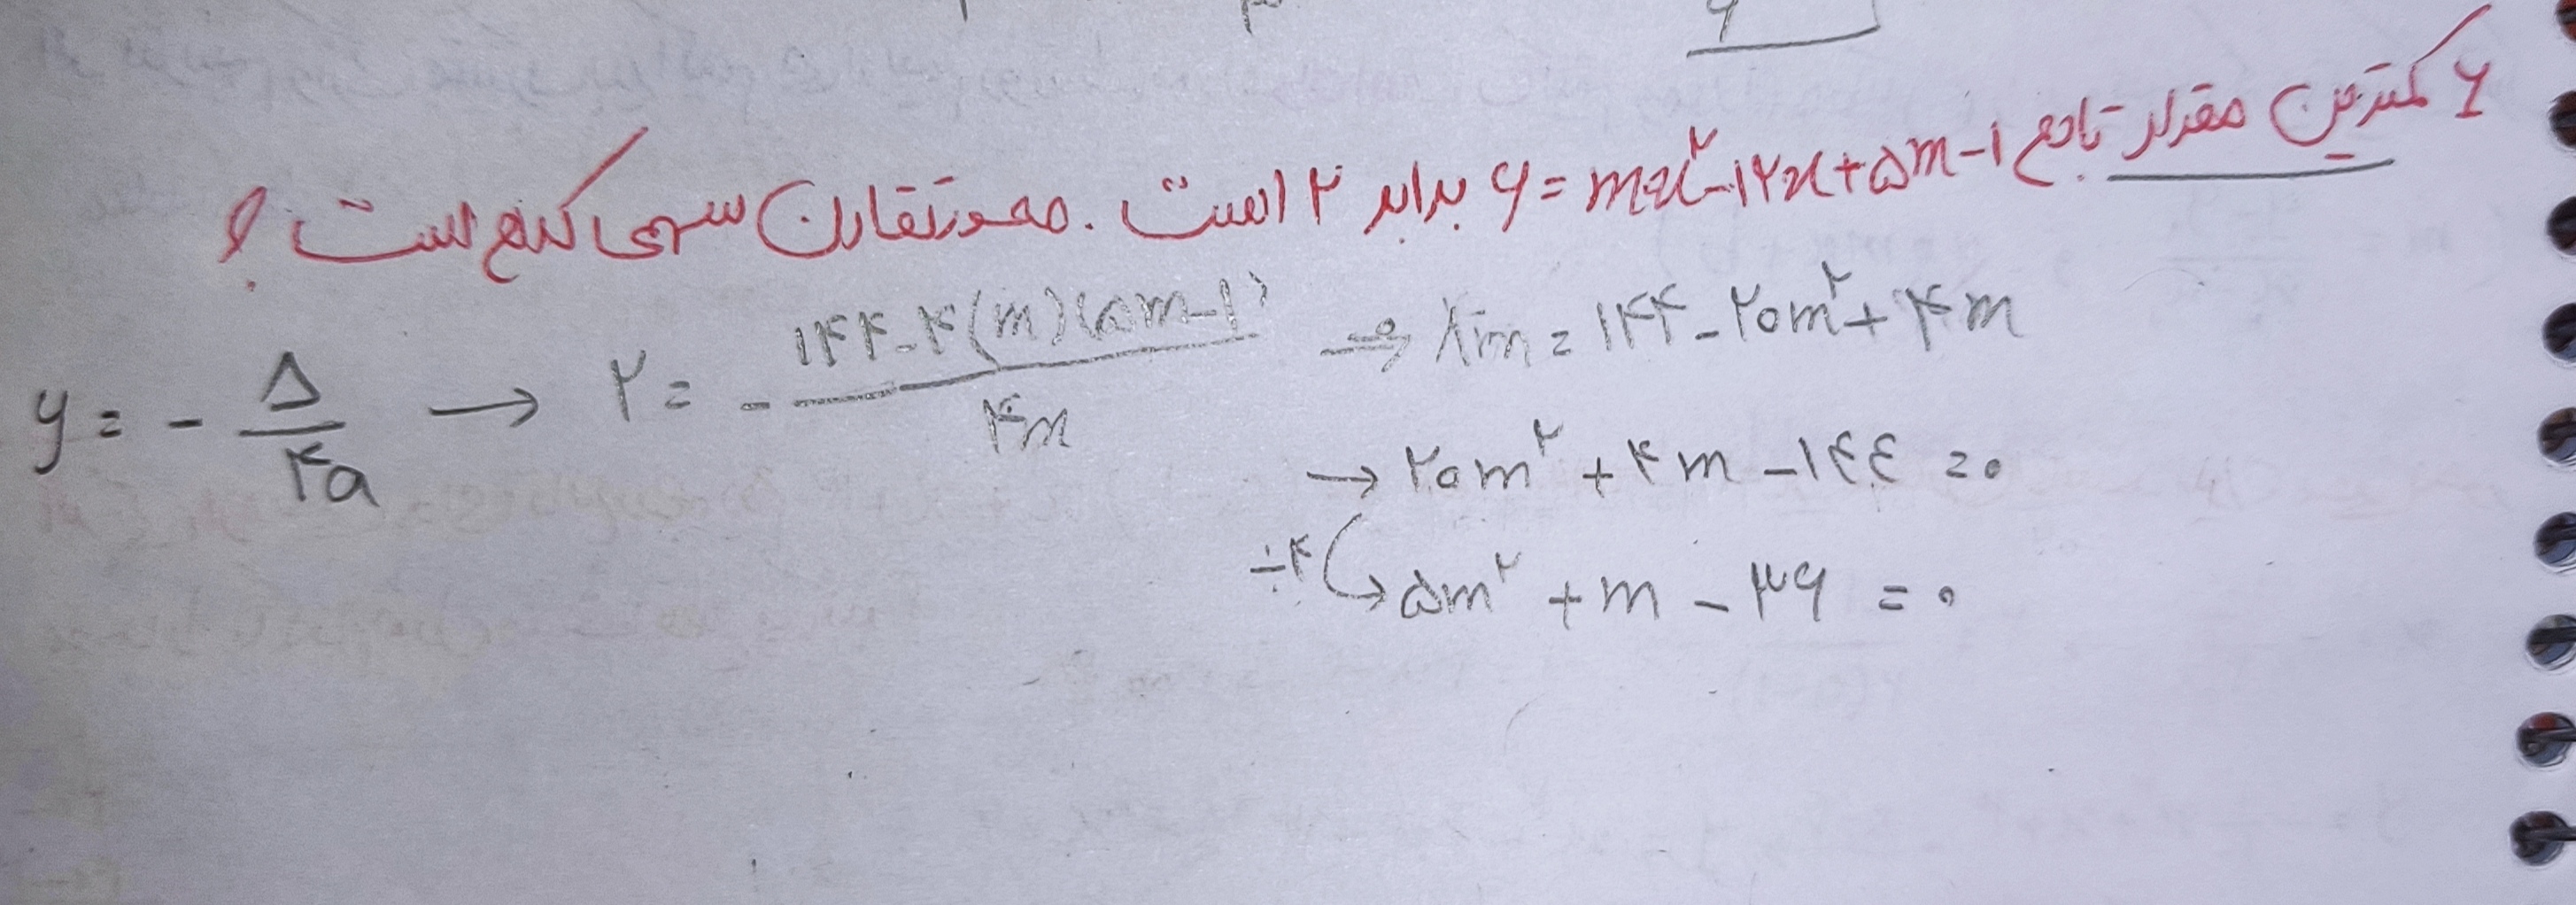 ۶ کمترین مقدار تابع y = mx² - ۱۲x + ۵m - ۱ برابر ۲ است. محور تقارن سهمی کدام است؟
y = - Δ/۴a → ۲ = - ۱۴۴-۴(m)(۵m-۱)/۴m ⇒ ۸m = ۱۴۴ - ۲۰m² + ۴m
→ ۲۰m² + ۴m - ۱۴۴ = ۰
÷۴ ↪ ۵m² + m - ۳۶ = ۰